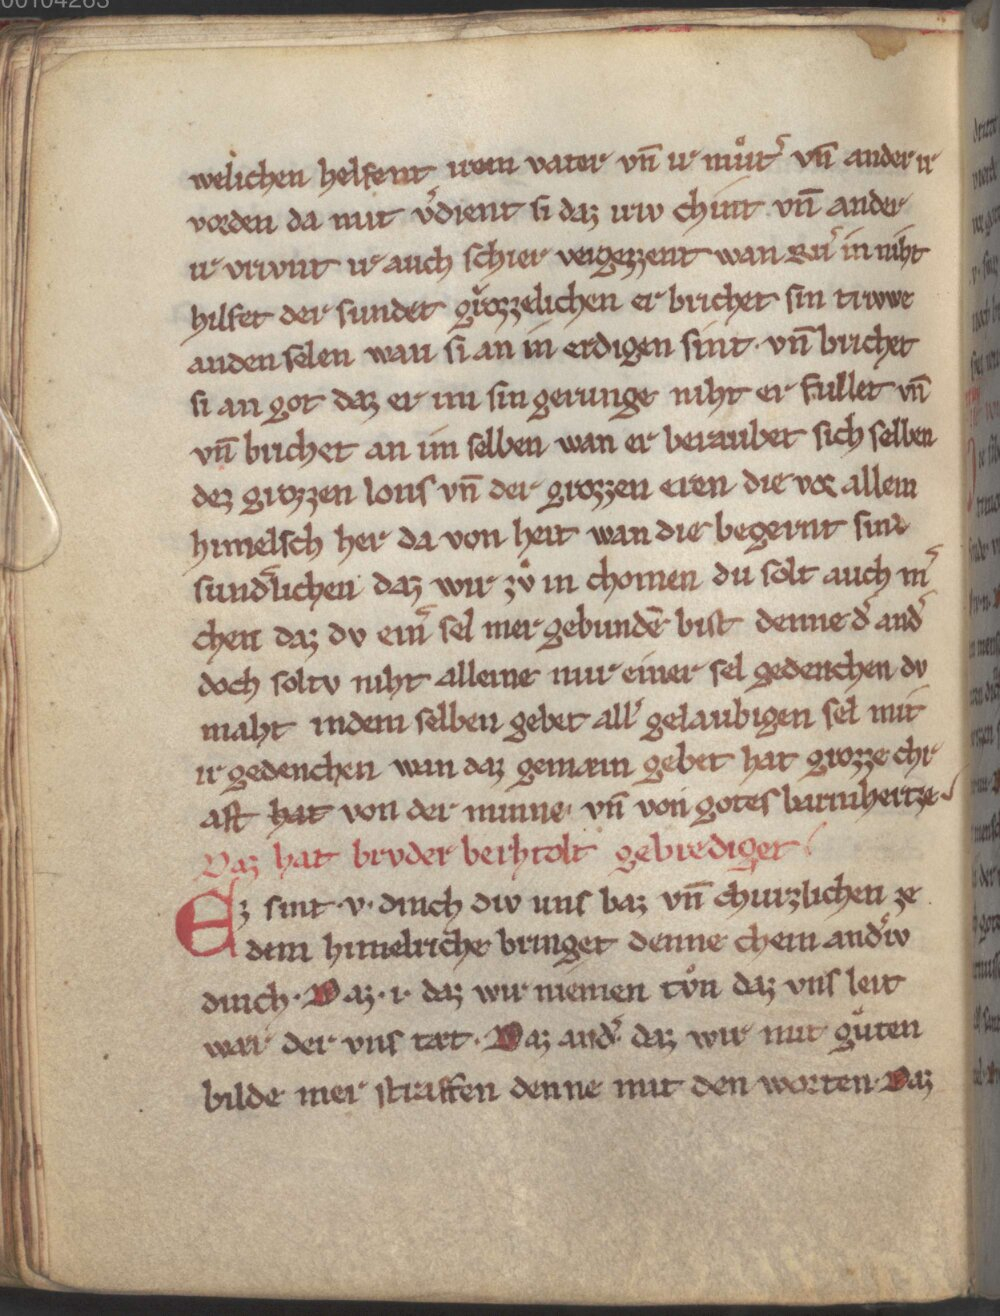 welichen helfent irem vater vn̄ ir můt͛ vn̄ ander ir
vorden da mit v͛dient si daz iriv chint vn̄ ander
ir vrivnt ir auch schier vergezzent wan Swer in niht
hilfet der sundet grozzelichen er brichet sin triwe
anden selen wan si an in erdigen sint · vn̄ brichet
si an got daz er im sin gerunge niht er fullet vn̄
vn̄ brichet an im selben wan er beraubet sich selben
dez grozzen lons vn̄ der grozzen eren die vor allem
himelsch her da von heit wan die begernt sine
sund͛lichen daz wir zv̊ in chomen du solt auch m͛
chen daz dv ein͛ sel mer gebundē bist denne d͛ and͛
doch soltv niht alleine nur einer sel gedenchen dv
maht indem selben gebet all͛ gelaubigen sel mit
ir gedenchen wan daz gemain gebet hat grozze chr
aft hat von der minne · vn̄ von gotes barmhertze
Daz hat brvder berhtolt gebrediget
Ez sint · v · dinch div uns baz vn̄ churzlichen ze
dem himelriche bringet denne chein and͛iv
dinch · Daz · i · daz wir niemen tv̊n daz vns leit
wær der vns tæt · Daz and͛ daz wir mit gůten
bilde mer straffen denne mit den worten · Daz